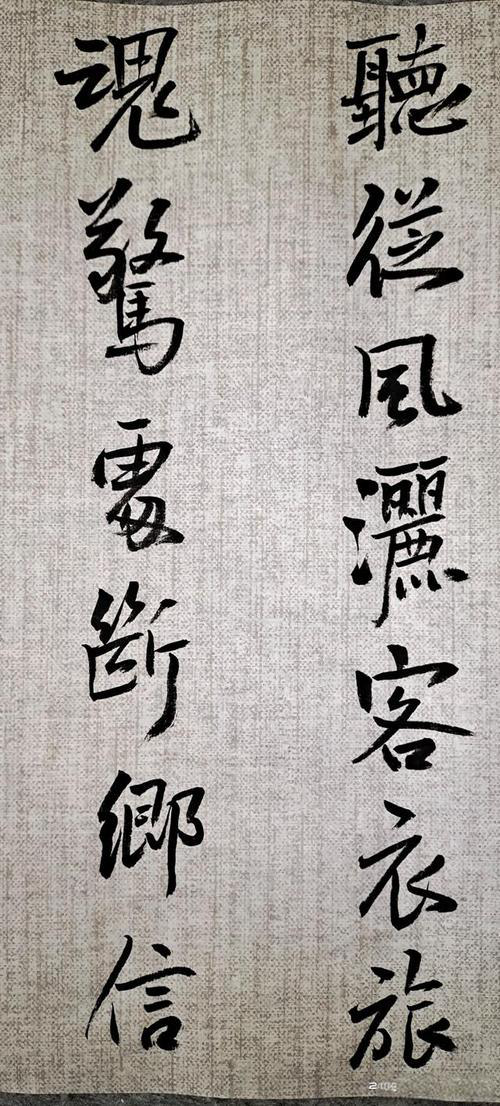 聽從風灑客衣旅
魂驚處斷鄉信